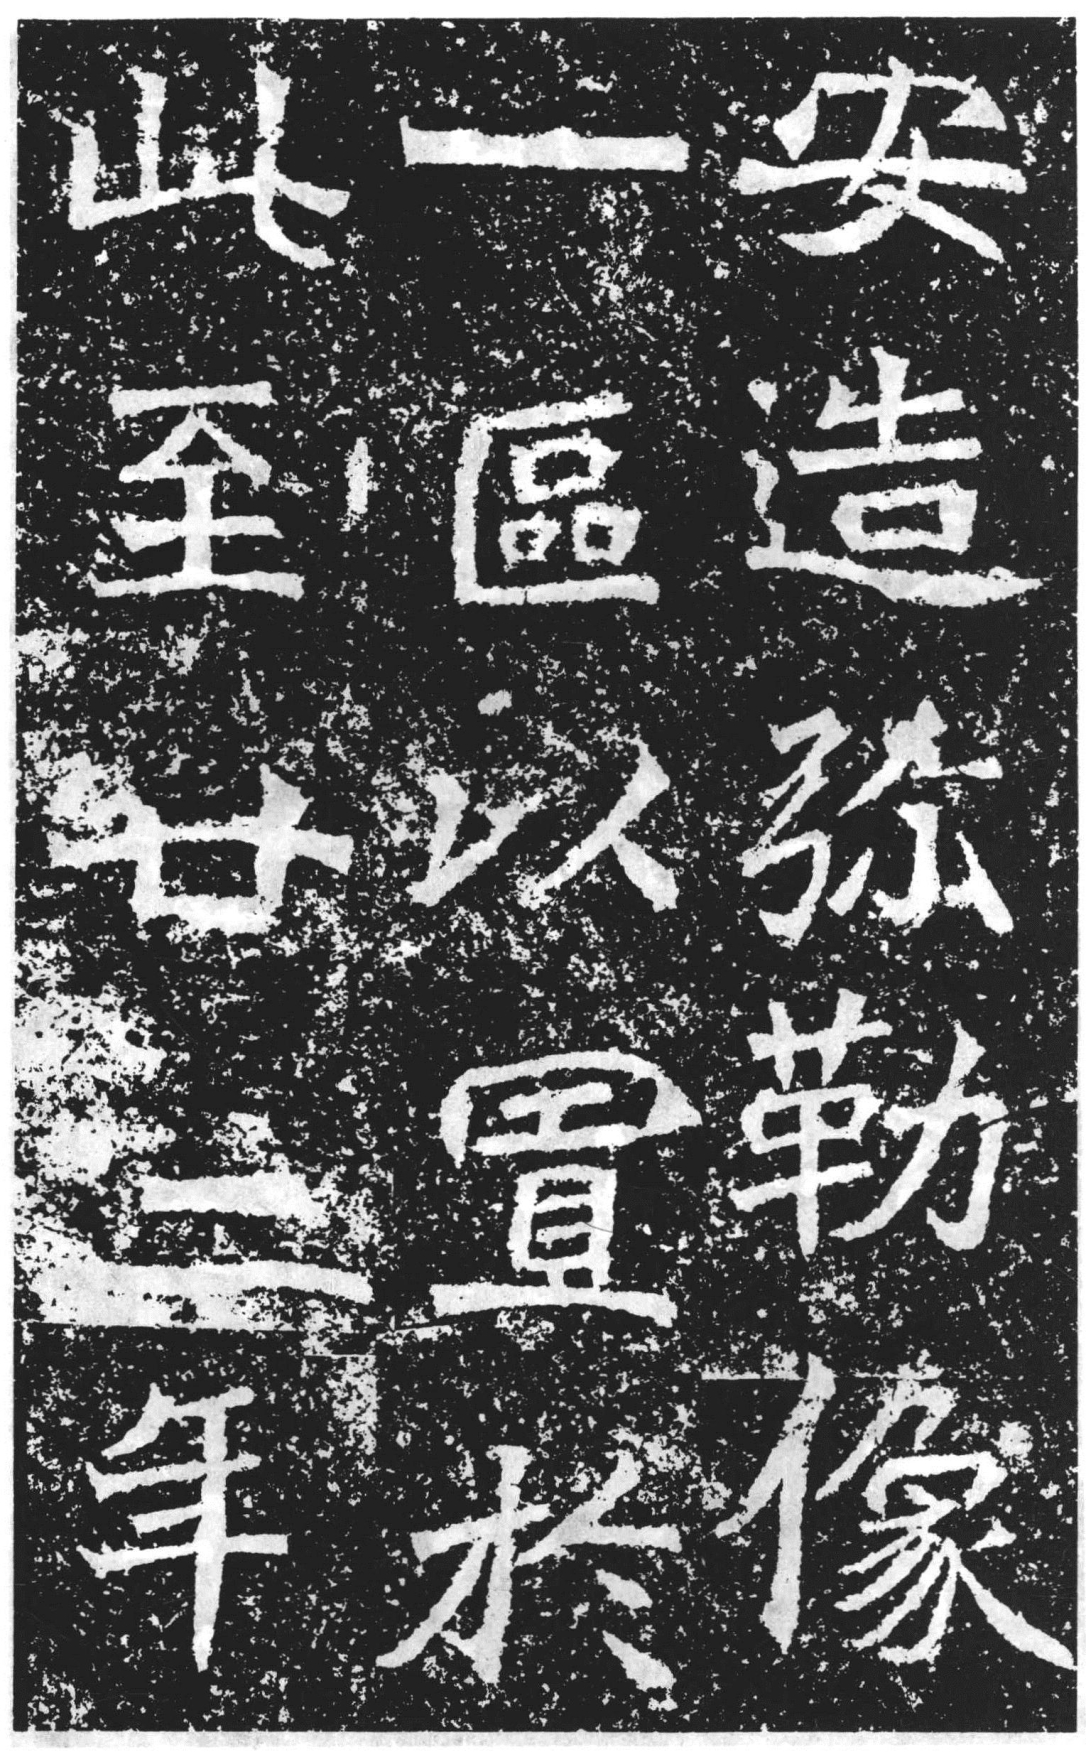 安造弥勒像
一區以置於
此至廿二年